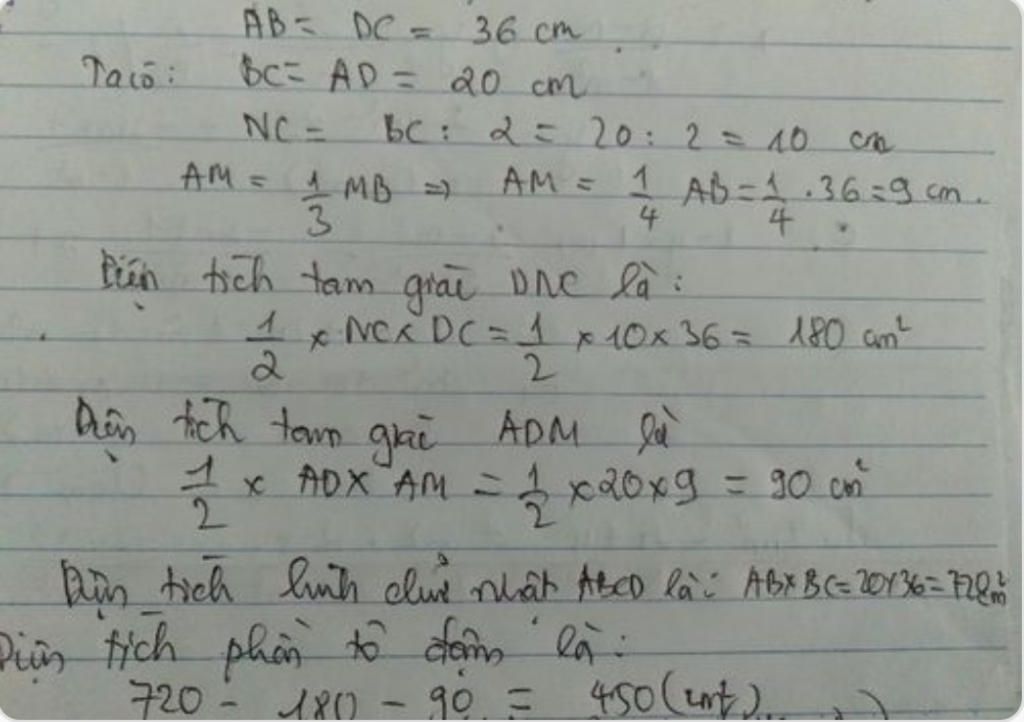 AB = DC = 36 cm
Ta có: BC = AD = 20 cm
NC = BC : 2 = 20 : 2 = 10 cm
AM = 1/3 MB => AM = 1/4 AB = 1/4 . 36 = 9 cm.
Diện tích tam giác DNC là:
1/2 x NC x DC = 1/2 x 10 x 36 = 180 cm²
Diện tích tam giác ADM là
1/2 x AD x AM = 1/2 x 20 x 9 = 90 cm²
Diện tích hình chữ nhật ABCD là: AB x BC = 20 x 36 = 720 cm²
Diện tích phần tô đậm là:
720 - 180 - 90 = 450 (cm²)